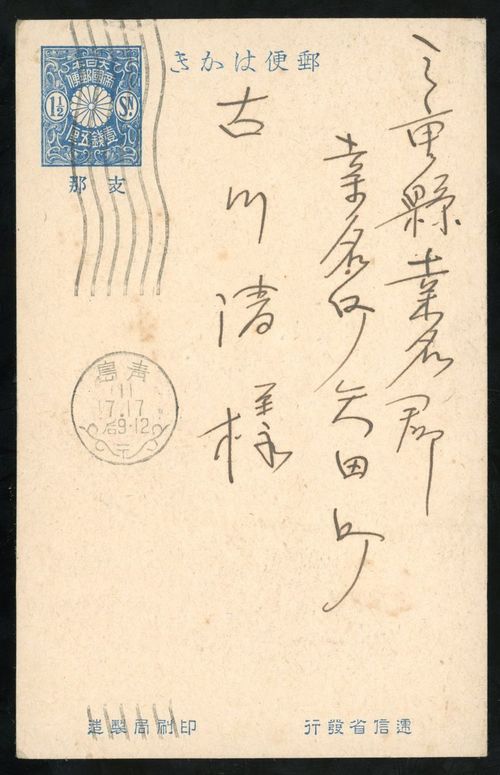 郵便はかき
大日本
帝國郵便
1½ SN.
壹銭五厘
支那
三重縣桑名郡
桑名町矢田町
古川清様
青島
11
17.17
后9-12
遞信省發行
印刷局製造